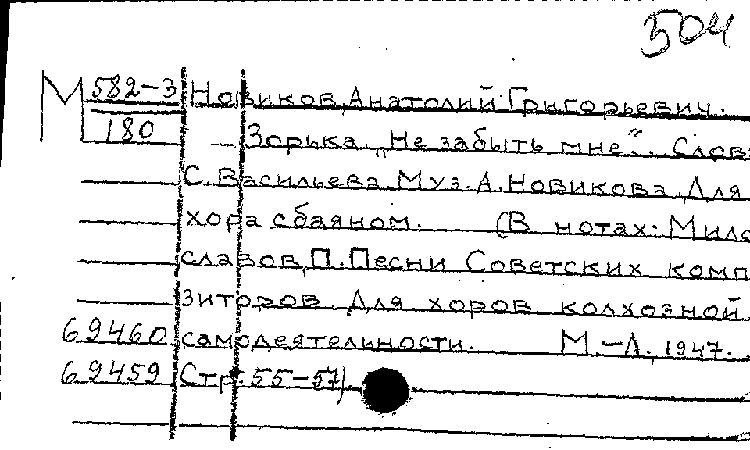 504
М 582-3 Новиков, Анатолий Григорьевич.
180 Зорька "Не забыть мне". Слова
С. Васильева. Муз. А. Новикова. Для
хора с баяном. (В нотах: Мило
славов, П. Песни Советских комп
зиторов. Для хоров колхозной
69460 самодеятельности. М.-Л., 1947.
69459 Стр. 55-57)